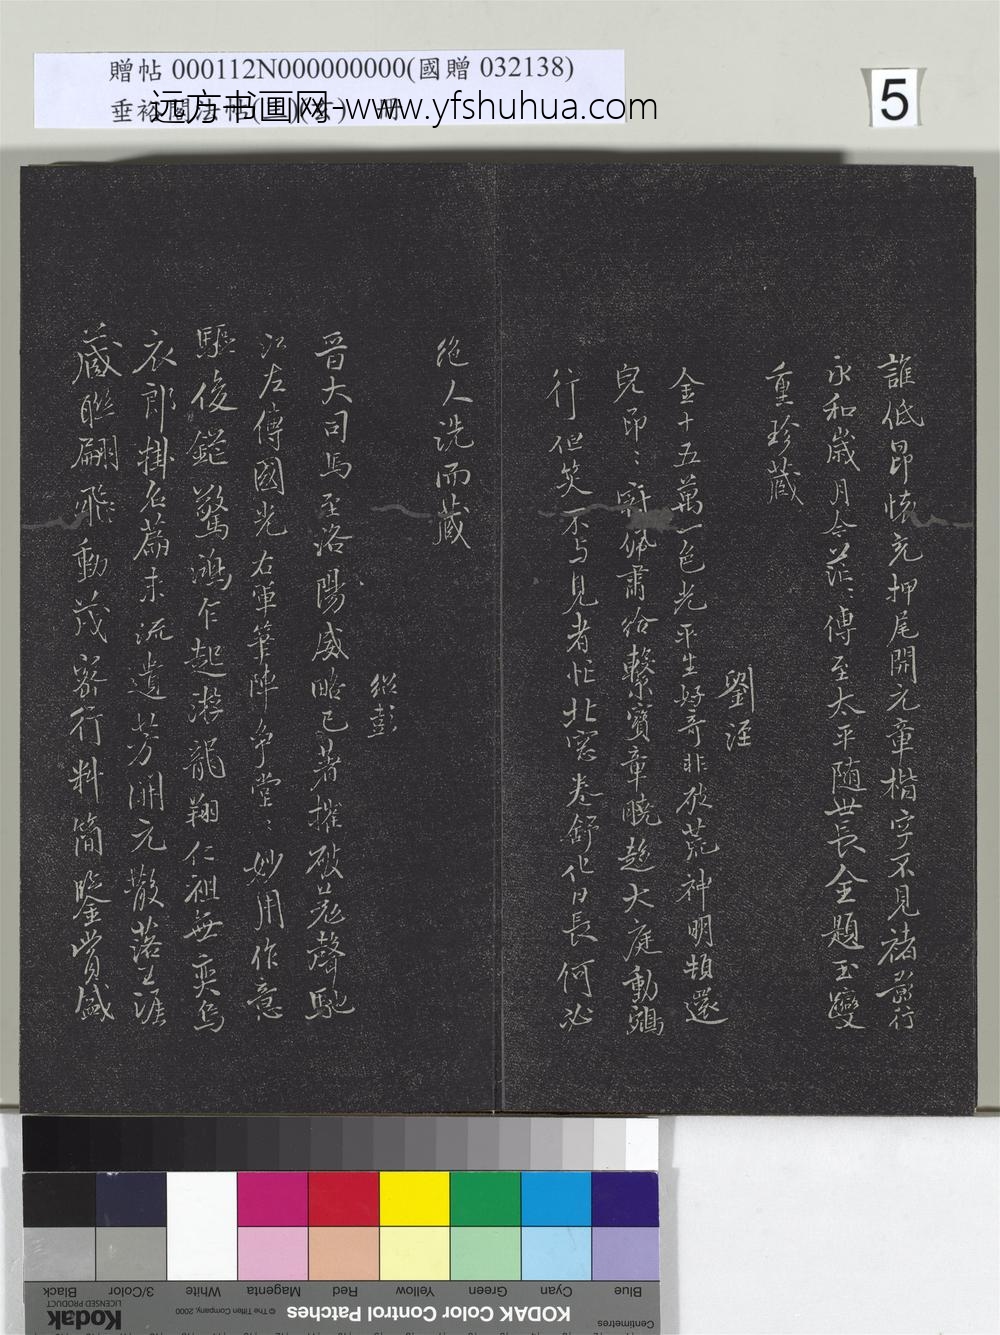 贈帖 000112N000000000(國贈 032138)
远方书画网-www.yfshuhua.com
5
誰低昂憶充押尾開元章楷字不見褚前行
永和歲月今茫茫傳至太平隨世長金題玉躞
重珍藏
劉涇
金十五萬一色光平生好奇非破荒神明頓還
兒印印辟佩肅給繫寶章曉趨大庭動鵷
行但笑不与見者忙北窓卷舒化日長何必
他人洗而藏
紹彭
晉大司馬至洛陽威略已著摧破羌聲馳
江左傳國光右軍筆陣争堂堂妙用作意
驅俊鎚驚鴻乍起游龍翔仁祖無奕烏
衣郎掛名篇末流遺芳開元散落生涯
藏聯翩飛動茂密行料簡鑒賞緘
KODAK Color Control Patches
Kodak
LICENSED PRODUCT
© The Tiffen Company, 2000
Centimetres
Blue
Cyan
Green
Yellow
Red
Magenta
White
3/Color
Black